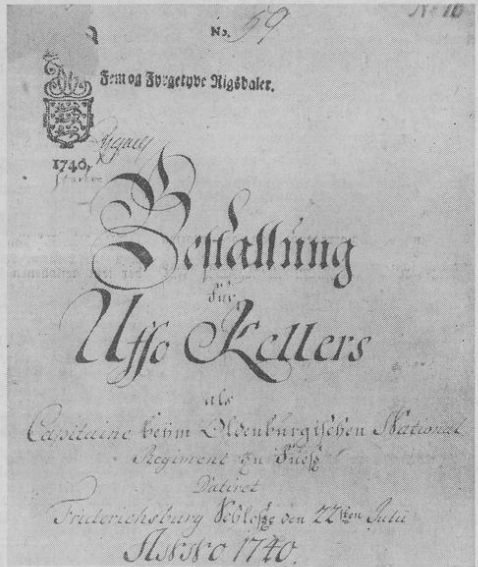 No. 59
No 10
Fem og Fyrgetyve Rigsdaler.
1740,
Bestallung
für
Uffo Kellers
als
Capitaine beÿm Oldenburgischen National
Regiment zu Fuesz
Datiret
Friderichsburg Schlosz den 22sten Julii
ANNO 1740.